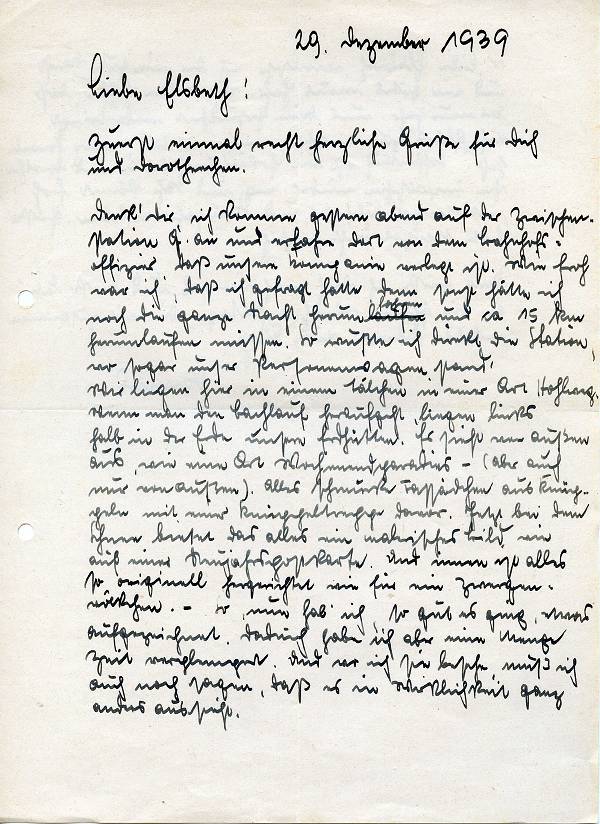 29. Dezember 1939
Liebe Elsbeth!
Zuerst einmal recht herzliche Grüße für Dich
und Dorotheechen.
Denk' Dir, ich komme gestern abend auf der Zwischen-
station G. an und erfahre dort von dem Bahnhofs-
offizier, daß unsere Kompanie verlegt ist. Wie froh
war ich, daß ich gefragt hatte, denn sonst hätte ich
noch die ganze Nacht herum fahren und ca 15 km
herumlaufen müssen. So wußte ich direkt die Station,
wo sogar unser Personenwagen stand.
Wir liegen hier in einem Tälchen in einer Art Hohlweg.
Wenn man den Bachlauf heraufgeht, liegen links
halb in der Erde unsere Erdhütten. Es sieht von außen
aus, wie eine Art Wochenendparadies - (aber auch
nur von außen). Alles schmucke Fassädchen aus Knüp-
peln mit einer Knüppeltreppe davor. Jetzt bei dem
Schnee bietet das alles ein malerisches Bild wie
auf einer Neujahrspostkarte. Und innen ist alles
so originell hergerichtet wie für ein Zwergen-
völkchen. - So, nun hab' ich, so gut es ging, etwas
aufgezeichnet. Dadurch habe ich aber eine Menge
Zeit verplempert. Und wo ich sie besehe muß ich
auch noch sagen, daß es in Wirklichkeit ganz
anders aussieht.